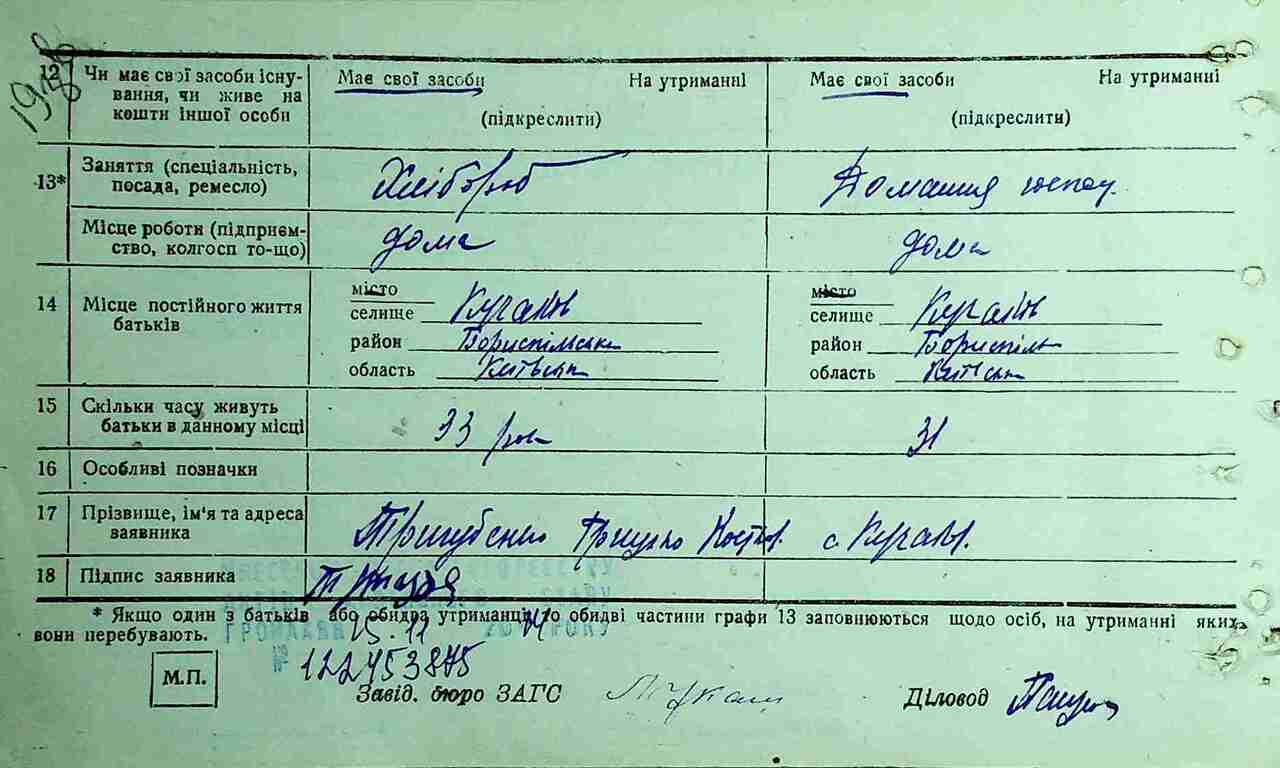 12 Чи має свої засоби існу- Має свої засоби На утриманні Має свої засоби На утриманні
вання, чи живе на
кошти іншої особи (підкреслити) (підкреслити)
13* Заняття (спеціальність,
посада, ремесло) Хлібороб Домашня
Місце роботи (підприєм-
ство, колгосп то-що) дома дома
14 Місце постійного життя
батьків
місто місто
селище Кучаків селище Кучаків
район Бориспільськ район Бориспіль
область Київськ область Київськ
15 Скільки часу живуть
батьки в данному місці 33 рок 31
16 Особливі позначки
17 Прізвище, ім'я та адреса
заявника Тригубенко Грицько с. Кучаків.
18 Підпис заявника
* Якщо один з батьків або обидва утриманці, то обидві частини графи 13 заповнюються щодо осіб, на утриманні яких
вони перебувають.
ГРОМАДЯН 25.11 РОКУ
№ 122453875
М.П. Завід. бюро ЗАГС Діловод